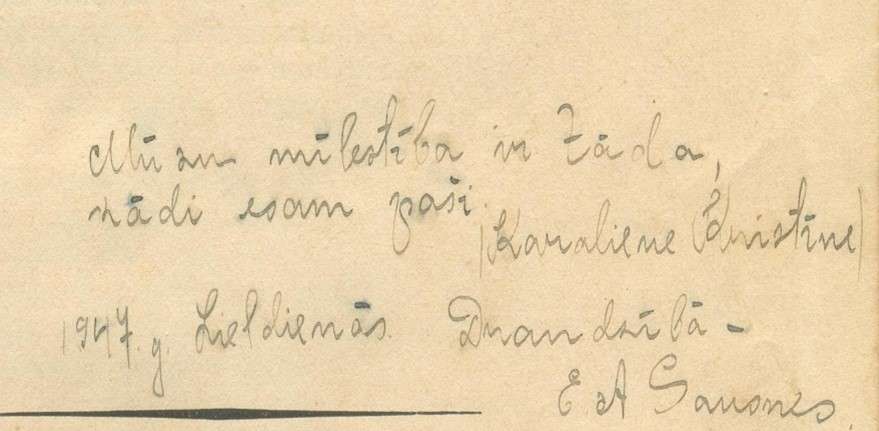 Mūsu mīlestība ir tāda,
kādi esam paši.
(Karaliene Kristīne)
1947. g. Lieldienās. Draudzībā -
E. A.